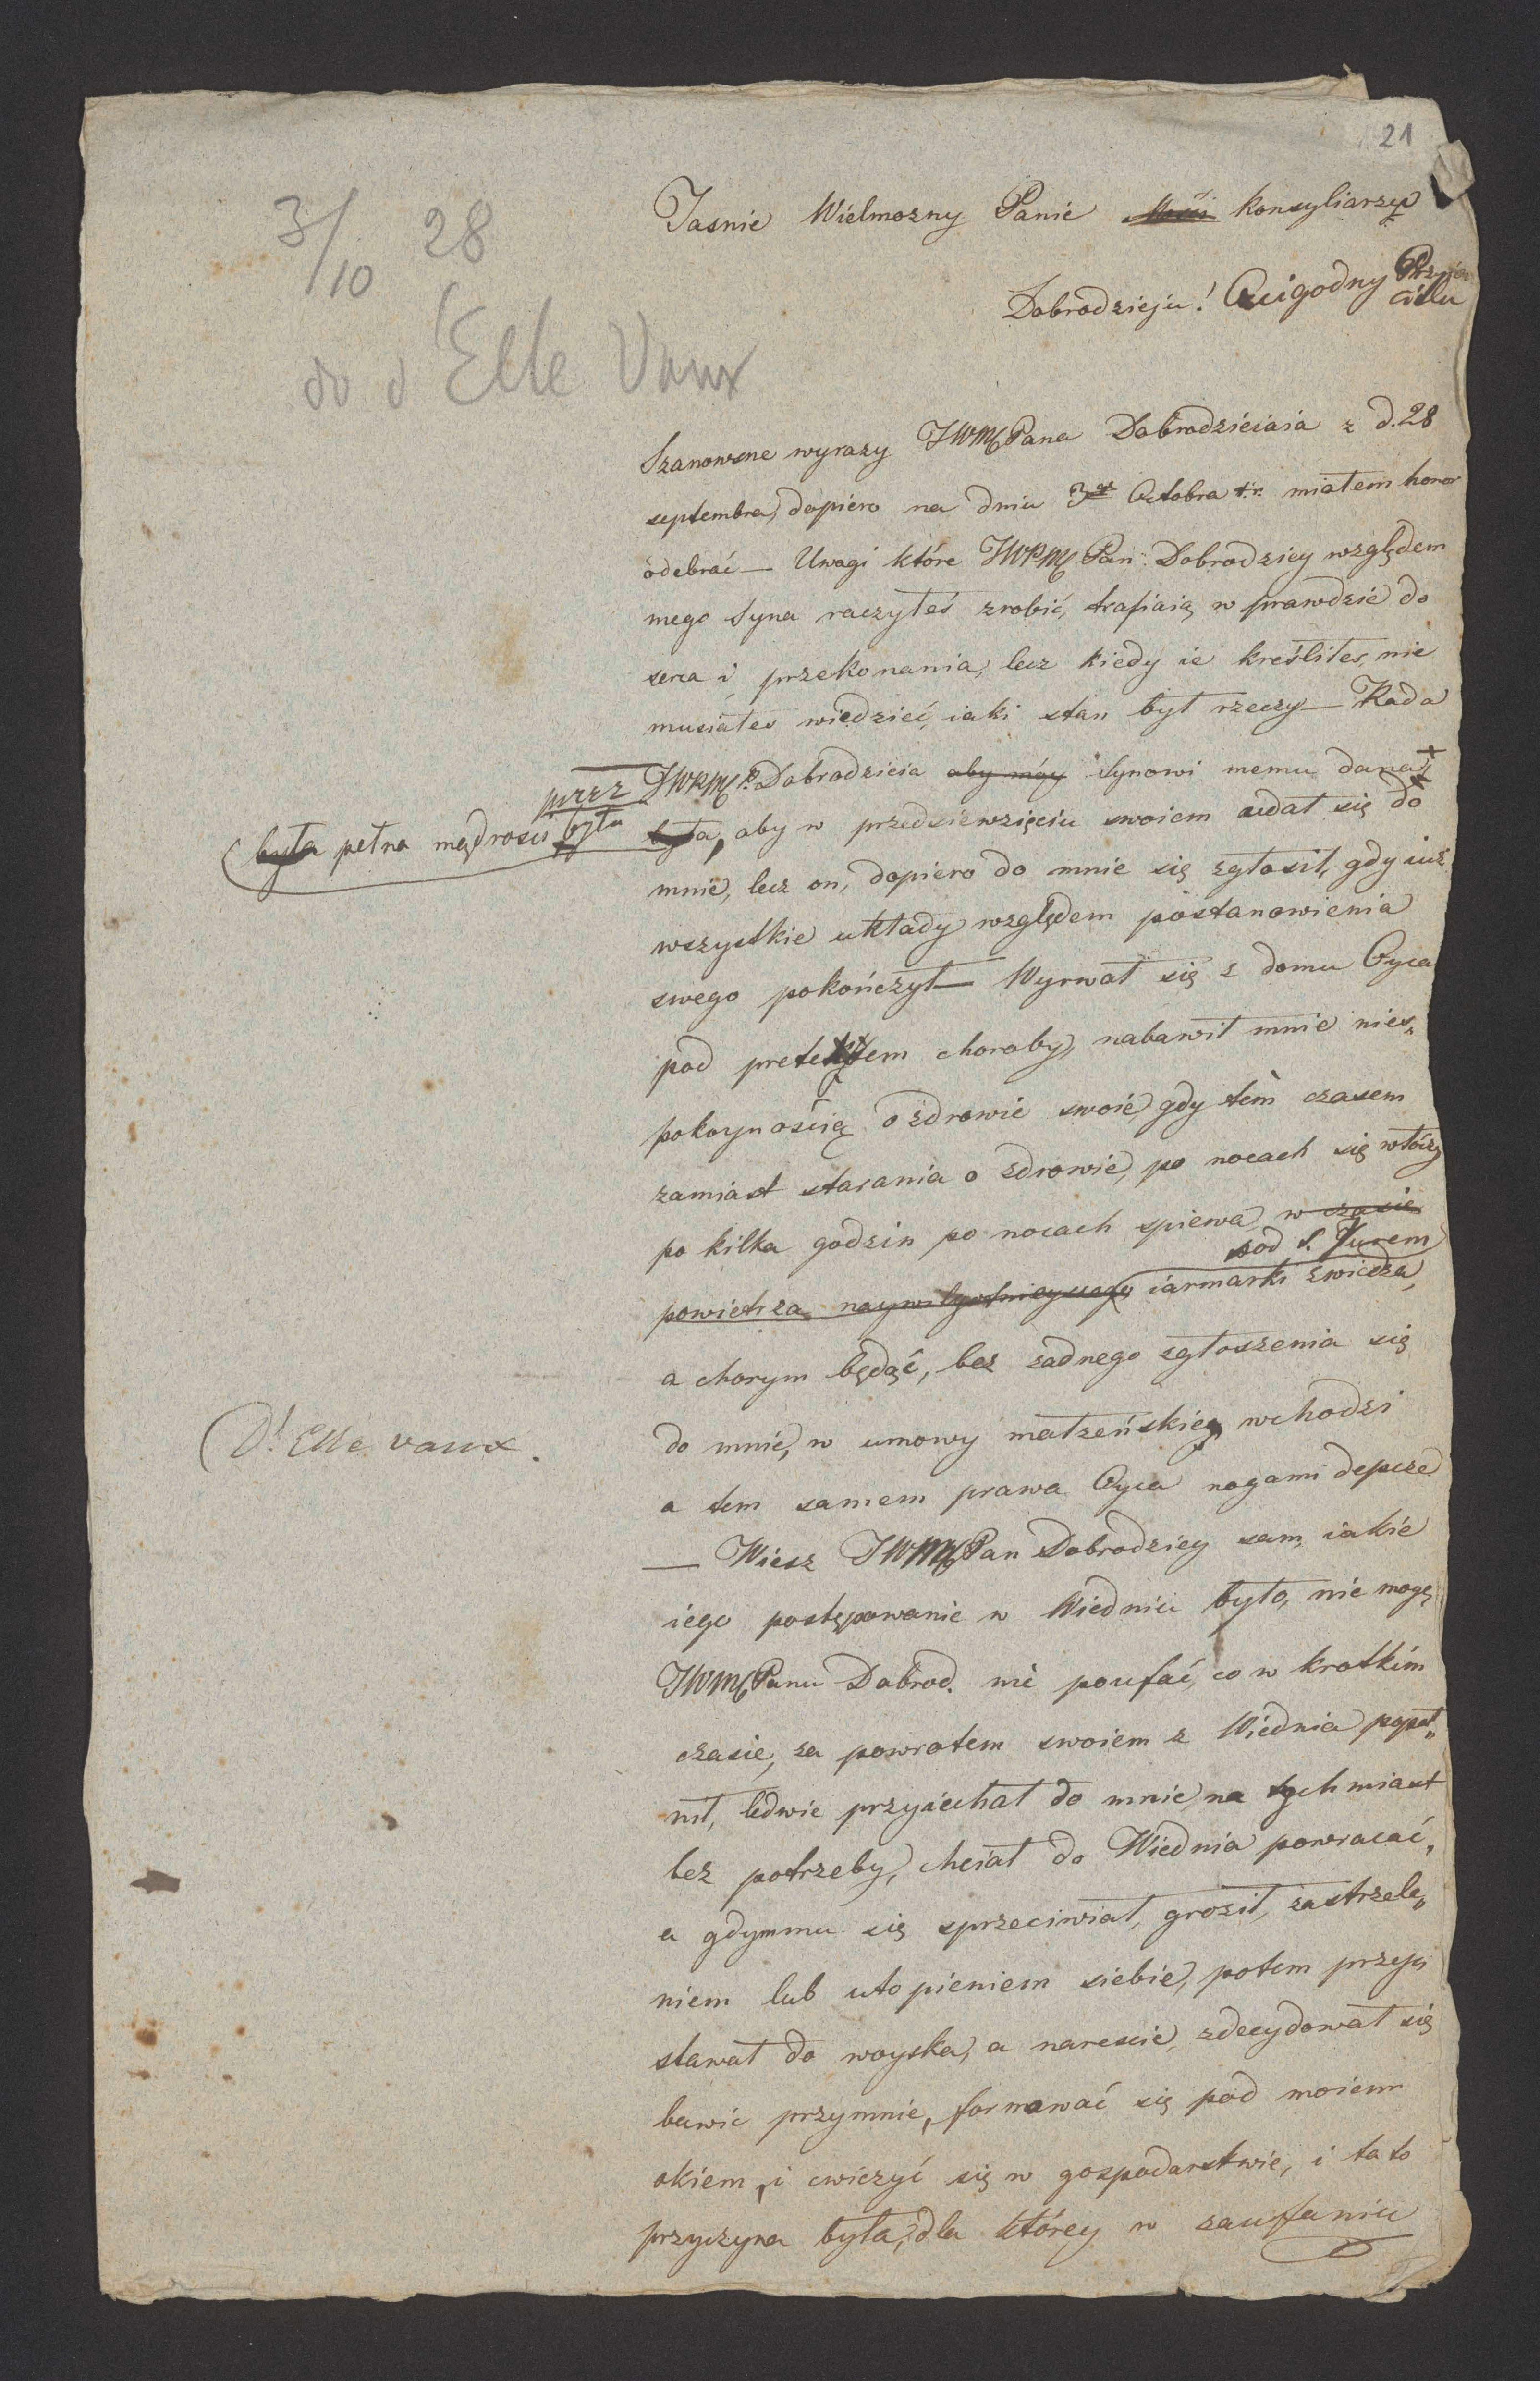 21
3/10 28
do d'Elle Vaux
Jasnie Wielmozny Panie Konsyliarzu
Dobrodzieju! Czcigodny Przyia
cielu
Szanowne wyrazy JWMPana Dobrodzieiaia z d. 28
septembra, dopiero na dniu 3go Octobra t.r. miałem honor
odebrać — Uwagi które JWPM Pan Dobrodziey względem
mego Syna raczyłeś zrobić, trafiaią w prawdzie do
serca i przekonania, lecz kiedy ie kreśliłes, nie
musiałes wiedzieć, iaki stan był rzeczy — Rada
przez JWPM P. Dobrodzieia aby móy Synowi memu dana
(była pełna mądrości była
była, aby w przedsiewzięciu swoiem udał się do
mnie, lecz on, dopiero do mnie się zgłosił, gdy iuż
wszystkie układy względem postanowienia
swego pokończył — Wyrwał się z domu Oyca
pod pretextem choroby, nabawił mnie nies„
pokoynością o zdrowie swoie, gdy tém czasem
zamiast starania o zdrowie, po nocach się włóczy
po kilka godzin po nocach spiewa, w czasie
pod S. Jurem
powietrza naywilgotnieyszego iarmarki zwiedza,
a chorym będąc, bez żadnego zgłoszenia się
do mnie, w umowy małżeńskie, wchodzi
(D'Elle vaux.
a tem samem prawa Oyca nogami depcze
— Wiesz JWMPan Dobrodziey sam, iakie
iego postępowanie w Wiedniu było, nie mogę
JWMPanu Dobrod. nie poufać, co w krotkim
czasie, za powrotem swoiem z Wiednia popeł„
nił, ledwie przyiechał do mnie, na tychmiast
bez potrzeby, chciał do Wiednia powracać,
a gdymmu się sprzeciwiał, groził, zastrzele„
niem lub utopieniem siebie, potem przy„
stawał do woyska, a nareście, zdecydował się
bawic przymnie, formować się pod moiem
okiem, i cwiczyć się w gospodarstwie, i ta to
przyczyna była, dla którey w zaufaniu